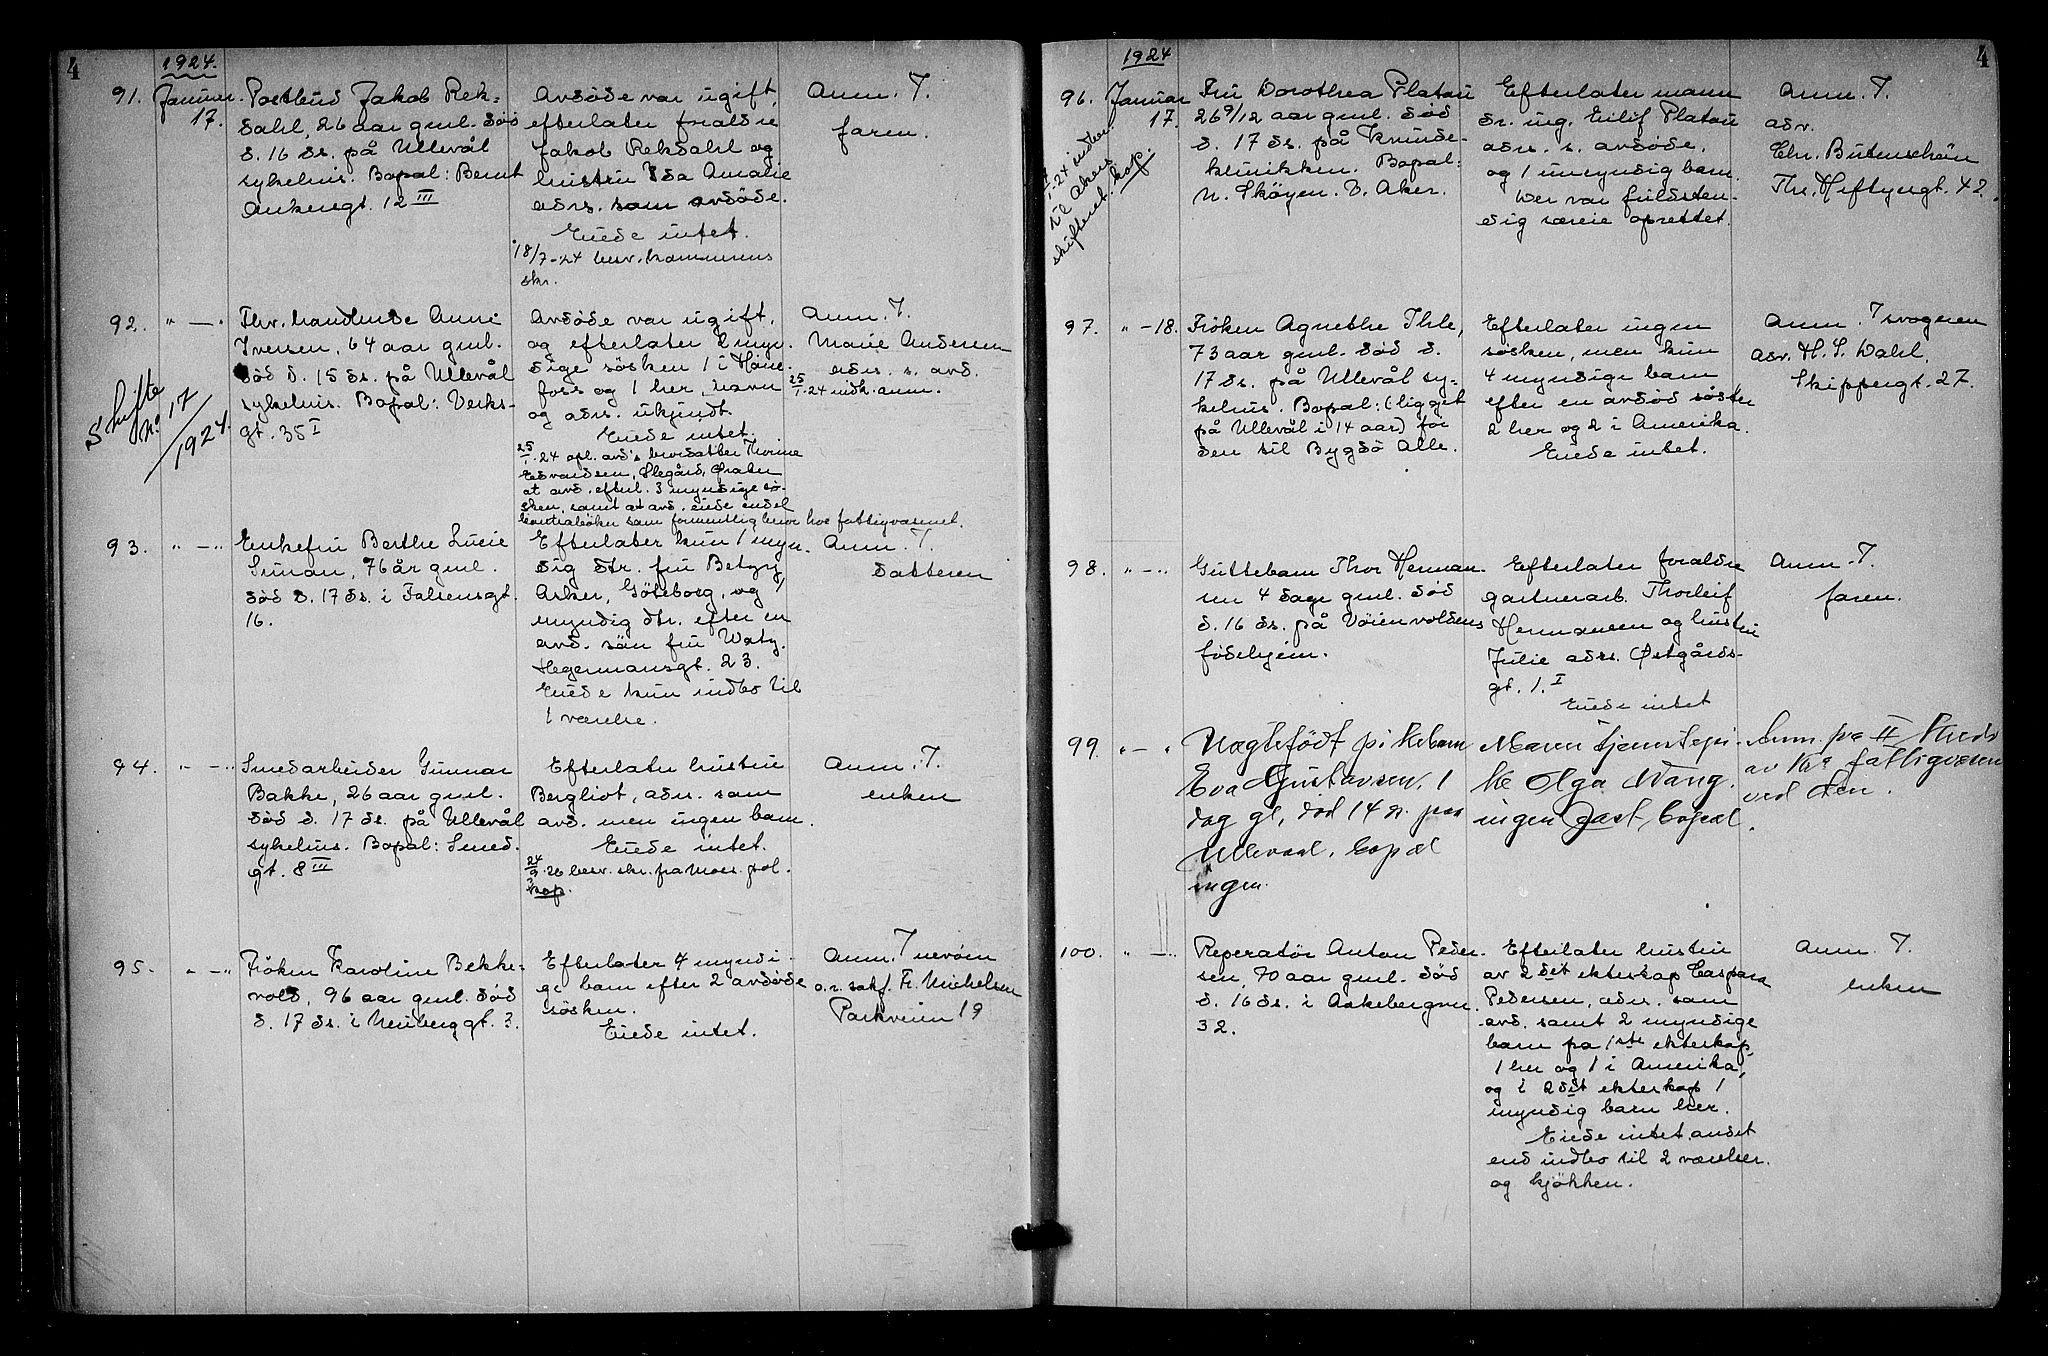 4
1924.
91. Januar 17.
Postbud Jakob Rek=
dahl, 26 aar gml. død
d. 16 ds. på Ullevål
sykehus. Bopæl: Bernt
Ankersgt. 12 III
Avdøde var ugift,
efterlater foraldre
Jakob Rekdahl og
hustru Ida Amalie
adrs. som avdøde.
Eiede intet.
18/7-24 besv. kommunens
skr.
Anm. T.
faren.
92. " — "
Skifte
no 17
/1924.
Thv. handlende Anne
Iversen, 64 aar gml.
død d. 15 ds. på Ullevål
sykehus. Bopæl: Verks-
gt. 35 I
Avdøde var ugift,
og efterlater 2 myn-
dige søsken 1 i Høne-
foss og 1 her, navn
og adrs. ukjendt.
Eiede intet.
25/1-24 opl. avd's brordatter Thorine
Edvardsen, Ølegård, Kråkerø
at avd. efterl. 3 myndige sø-
sken, samt at avd. eiede endel
som formentlig beror hos fattigvæsenet.
Anm. T.
Marie Andersen
adrs. s. avd.
25/1-24 indk. anm.
93. " — "
Enkefru Berthe Lucie
Simon, 76 år gml.
død d. 17 ds. i Falsensgt.
16.
Efterlater kun 1 myn-
dig dtr. fru Betzy
Asker, Göteborg, og
myndig dtr. efter en
avd. sön fru Waty.
Hegermansgt. 23.
Eiede kun indbo til
1 værelse.
Anm. T.
datteren
94. " — "
Smedarbeider Gunnar
Bakke, 26 aar gml.
død d. 17 ds. på Ullevål
sykehus. Bopæl: Smed.
gt. 8 III
Efterlater hustru
Bergliot, adr. som
avd. men ingen barn.
Eiede intet.
24/9-26 besv. skr. fra Moss pol.
kap.
Anm. T.
enken
95. " — "
Frøken Karoline Bekke-
vold, 96 aar gml. død
d. 17 ds. i Neuberggt. 3.
Efterlater 4 myndi-
ge barn efter 2 avdøde
søsken.
Eiede intet.
Anm. T nevøen
o.r. sakf. Fr. Michelsen
Parkveien 19
1924
4
96. Januar 17.
1-24 indber.
til Akers
skifteret. kop.
Fru Dorothea Platou
26 9/12 aar gml. død
d. 17 ds. på Kvinde-
klinikken. Bopæl:
N. Skøyen. V. Aker.
Efterlater mann
dr. ing. Eilif Platou
adrs. s. avdøde,
og 1 umyndig barn.
Der var fuldsten-
dig særeie oprettet.
Anm. T.
adv.
Chr. Butenschøn
Th. Heftyesgt. 42.
97. " — 18.
Frøken Agnethe Ihle,
73 aar gml. død d.
17 ds. på Ullevål sy-
kehus. Bopæl: (ligget
på Ullevål i 14 aar) før
den til Bygdö Alle.
Efterlater ingen
søsken, men kun
4 myndige barn
efter en avdød søster
2 her og 2 i Amerika.
Eiede intet.
Anm. T svogeren
adv. H. S. Dahl,
Skippergt. 27.
98. " — "
Guttebarn Thor Herman-
sen 4 dage gml. død
d. 16 ds. på Vøienvoldens
fødehjem.
Efterlater foraldre
gartnerarb. Thorleif
Hermansen og hustru
Julie adrs. Østgårds-
gt. 1. I
Eiede intet
Anm. T.
faren.
99. " — "
Uægtefödt pikebarn
Eva Gustavsen, 1
dag gl, død 14 ds. paa
Ullevaal, bopæl
ingen.
Moren tjenstepi-
ke Olga Wang.
ingen fast bopæl.
Anm. pa II Kreds
av Kra fattigvæsen
ved den.
100. " — "
Reperatør Anton Peder-
sen, 70 aar gml. død
d. 16 ds. i Aakebergvn.
32.
Efterlater hustru
av 2det ekteskap Caspara
Pedersen, adr. som
avd. samt 2 myndige
barn fra 1ste ekteskap,
1 her og 1 i Amerika,
og i 2det ekteskap 1
myndig barn her.
Eiede intet andet
end indbo til 2 værelser
og kjøkken.
Anm. T.
enken